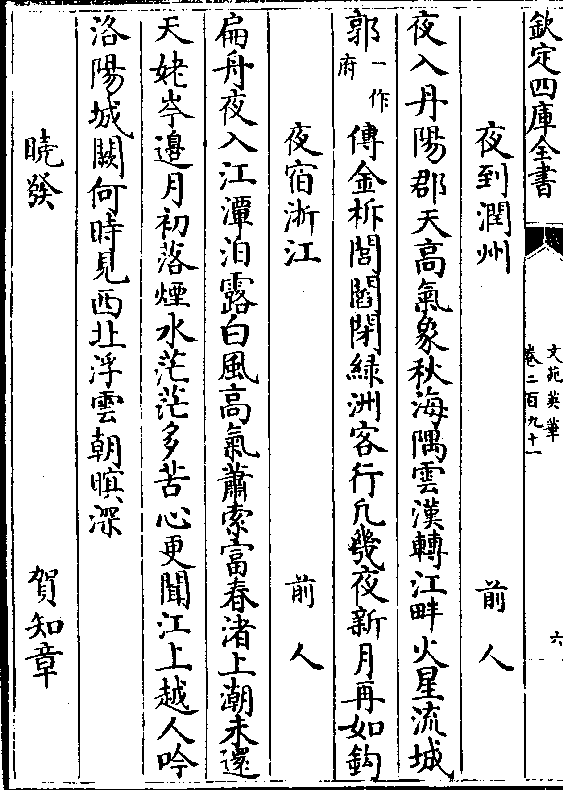 欽定四庫全書
文苑英華
卷二百九十一
六
夜到潤州
前人
夜入丹陽郡天高氣象秋海隅雲漢轉江畔火星流城
郭一作府傳金柝閭閻閉綠洲客行凡幾夜新月再如鈎
夜宿浙江
前人
扁舟夜入江潭泊露白風高氣蕭索富春渚上潮未還
天姥岑邉月初落煙水茫茫多苦心更聞江上越人吟
洛陽城闕何時見西北浮雲朝暝深
曉發
賀知章